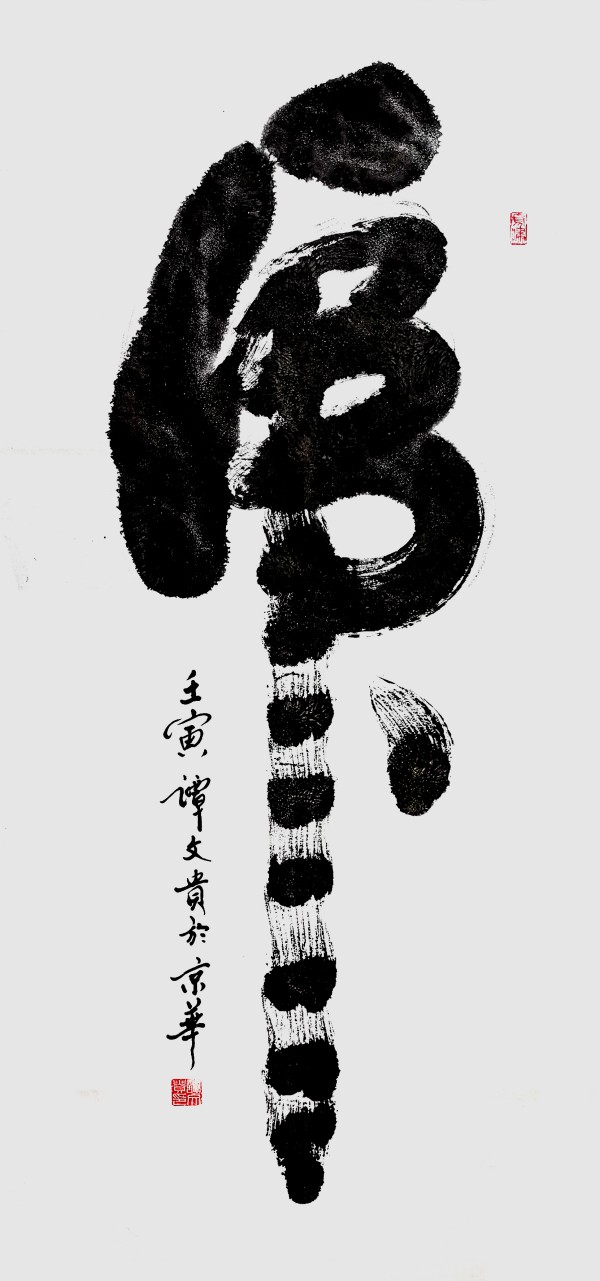 虎
壬寅譚文貴於京華